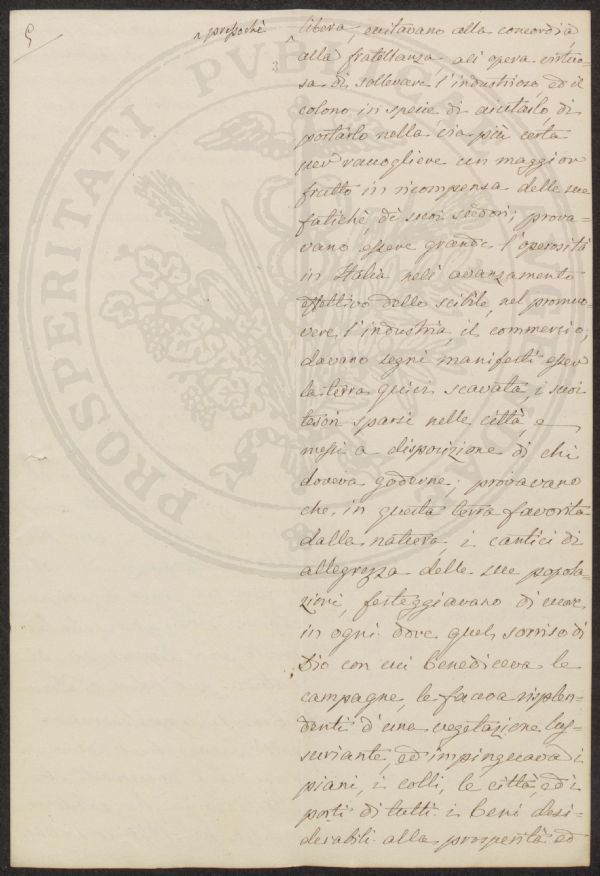 5
^ pressochè
libera, invitavano alla concordia,
alla fratellanza all'opera virtuo=
3
sa di sollevare l'industrioso, ed il
colono in specie di aiutarlo, di
portarlo nella via più certa
per raccogliere un maggior
frutto in ricompensa delle sue
fatiche, de' suoi sudori; prova=
vano essere grande l'operosità
in Italia nell' avanzamento
effettivo dello scibile, nel promuo=
vere, l'industria, il commercio;
davano segni manifesti esser
la terra quivi scavata, i suoi
tesori sparsi nelle città e
messi a disposizione di chi
doveva goderne; provavano
che, in questa terra favorita
dalla natura, i cantici di
allegrezza delle sue popola=
zioni, festeggiavano di cuore
in ogni dove quel sorriso di
Dio con cui benediceva le
campagne, le facea risplen=
denti d'una vegetazione lus=
sureggiante, ed impinguava i
piani, i colli, le città, ed i
porti di tutti i beni desi=
derabili alla prosperità ed
PROSPERITATI PUBLICAE